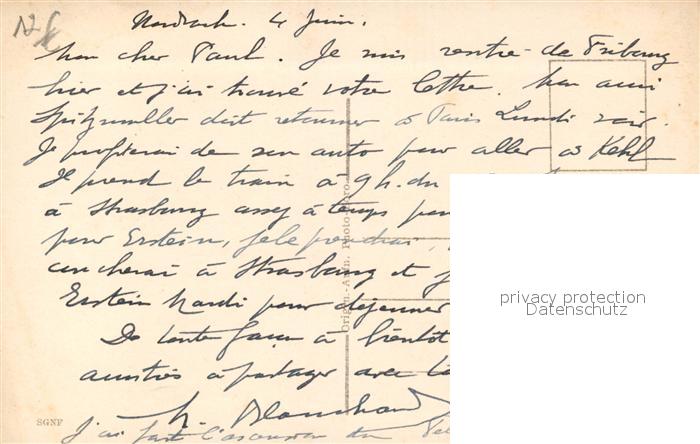 4 Juin.
Mon cher Paul. Je suis rentré de Fribourg
hier et j'ai trouvé votre lettre. Mon ami
Spitzmuller doit retourner à Paris Lundi soir.
Je profiterai de son auto pour aller à Kehl
Je prend le train à 9h. du
à Strasbourg assez à temps pour
pour Erstein, je le prendrai,
coucherai à Strasbourg et
Erstein Mardi pour déjeuner
De toute façon à bientôt
amitiés à partager avec
Blanchard
J'ai fait l'ascension du
Origin.-Aufn. Photo-
SGNF
privacy protection
Datenschutz